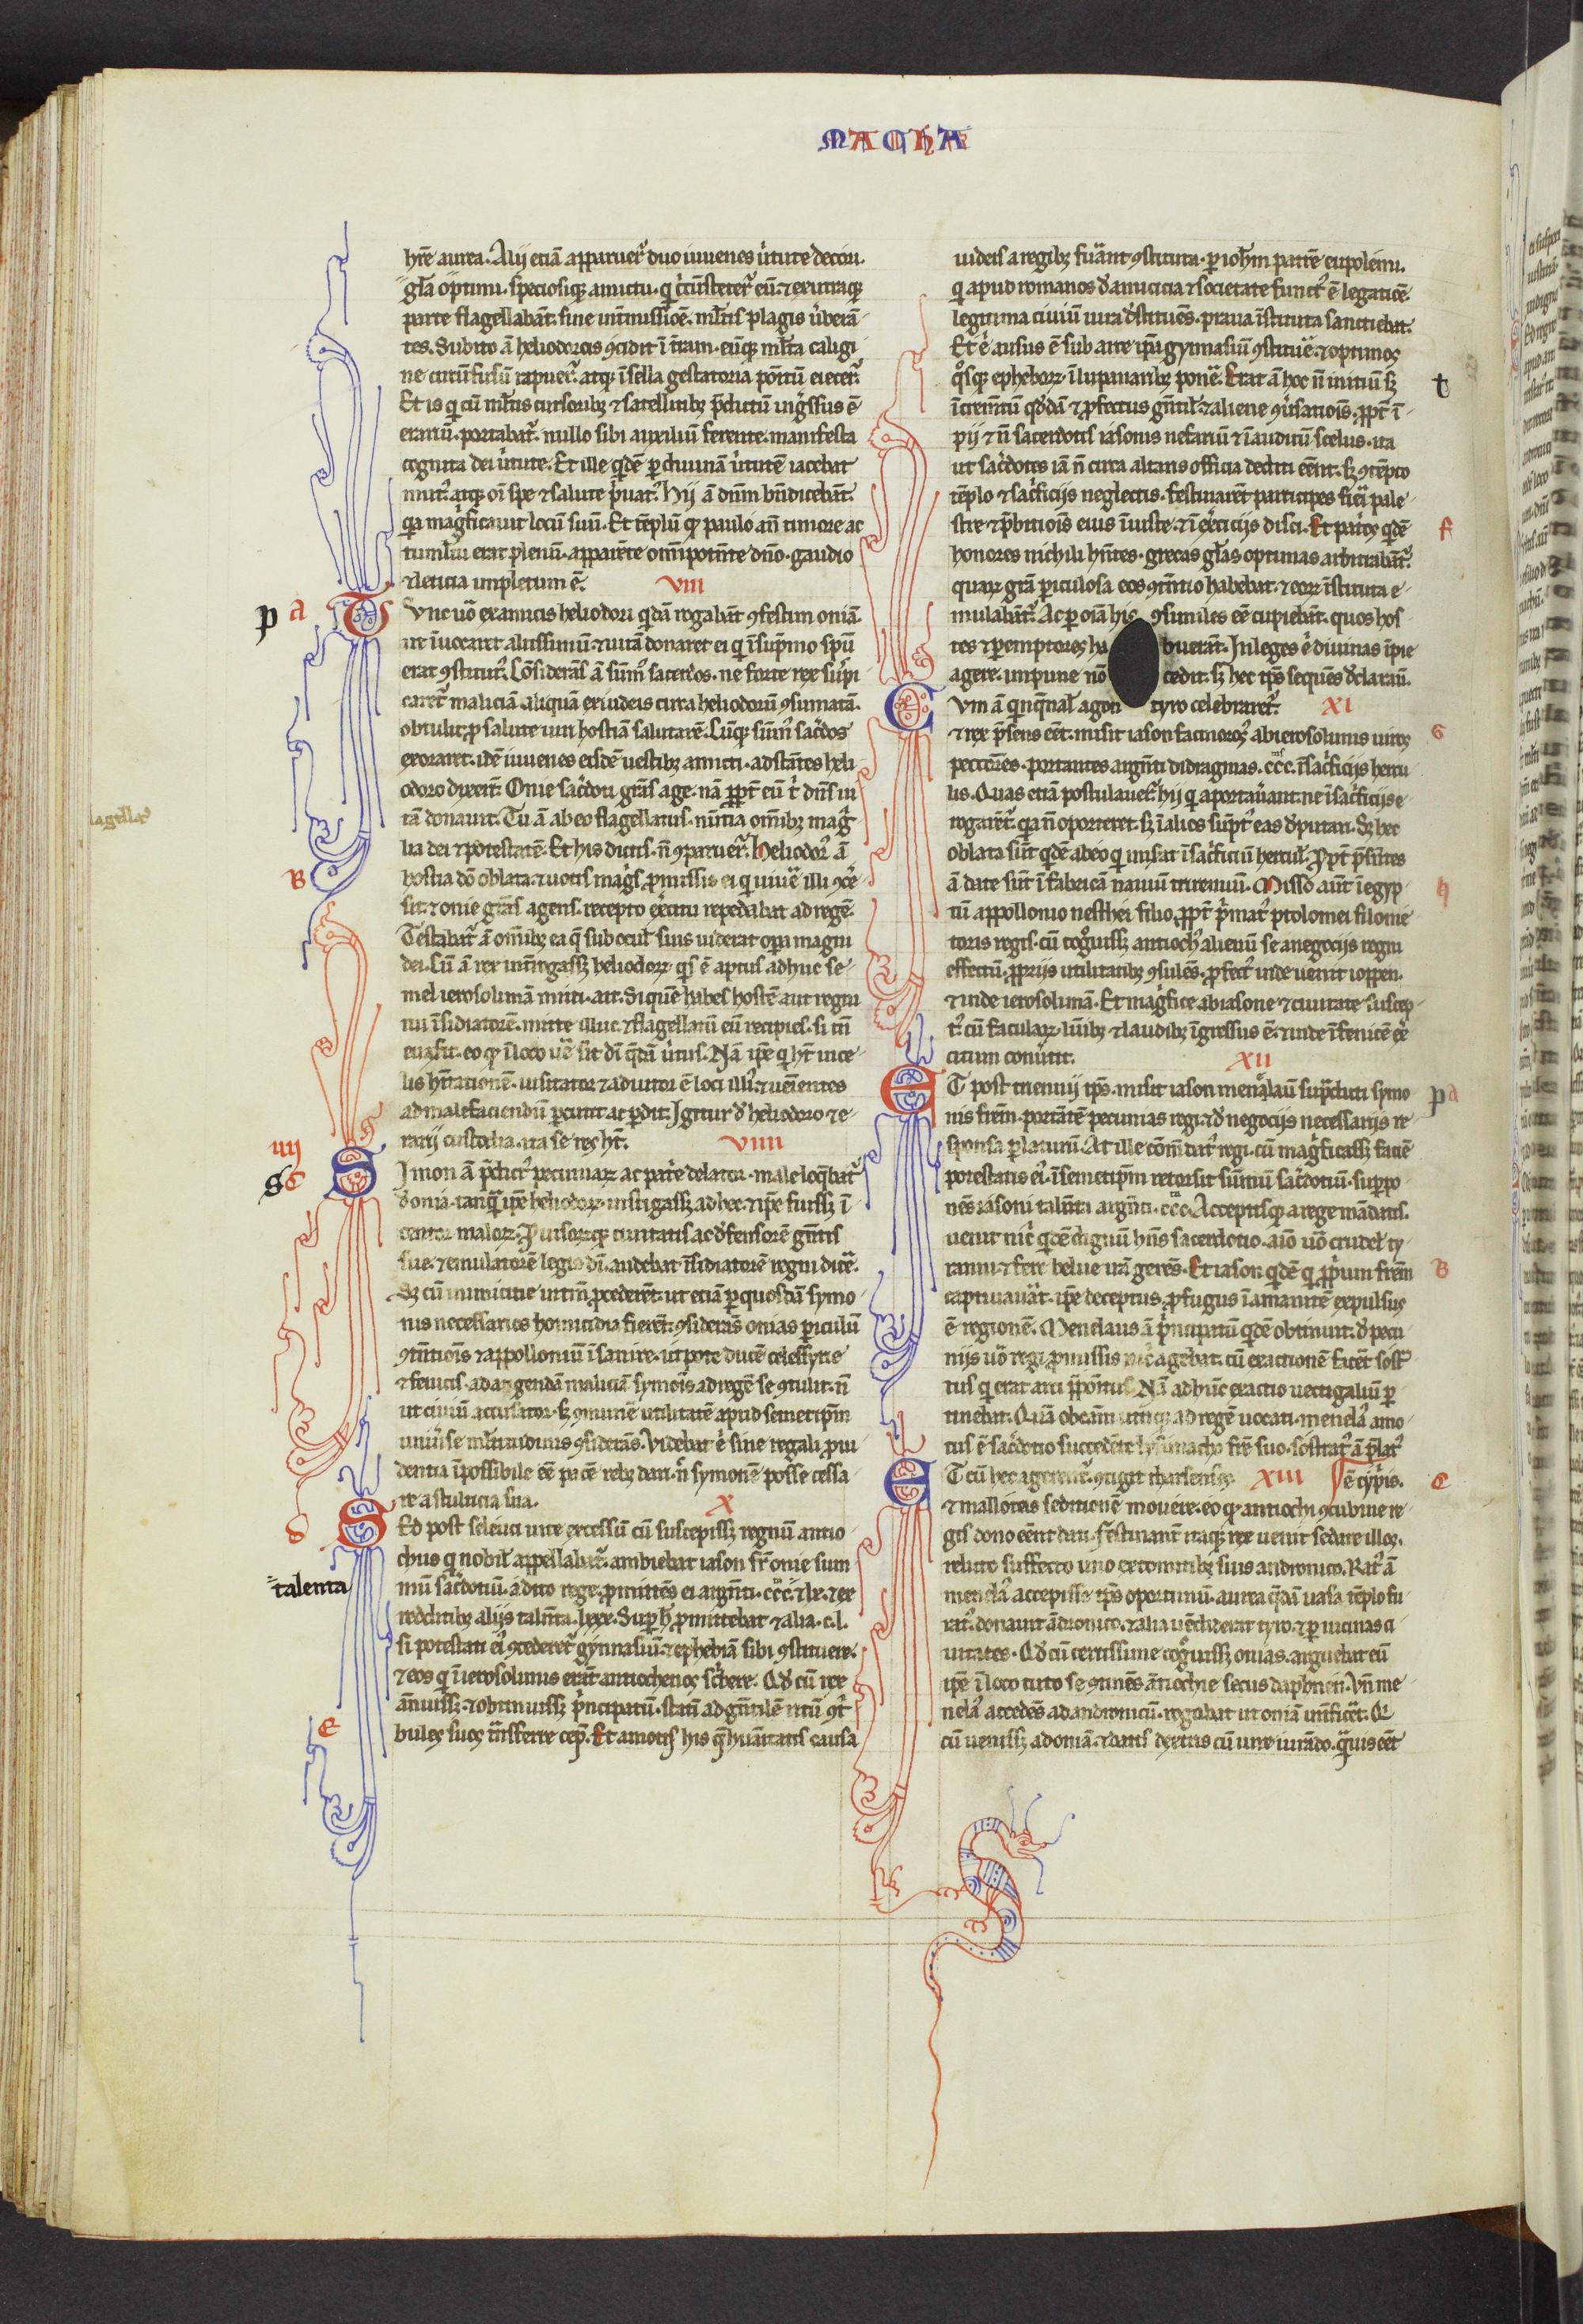 MACHA
hr̄e aurea. Alij etiā apparuer̄ duo iuuenes u̇tute decori.
gl̄a optimi. speciosiq; amictu. q̇ c̄cūsteter̄ eū. ⁊ ex utraq;
parte flagellabāt. sine int̄missiōe. ml̄tis plagis u̇berā
tes. Subito ā heliodorus ꝯcidit ī t̄ram. eūq; ml̄ta caligi
ne circūfusū rapuer̄. atq; ī sella gestatoria poſitū eiecer̄.
Et is q̇ cū ml̄tis cursorib; ⁊ satellitib; p̄dictū ing̃ssus ē
erariū. portabat̄. nullo sibi auxiliū ferente. manifesta
cognita dei u̇tute. Et ille q̇dē ꝑ diuinā u̇tutē iacebat
mut᷒. atq; oī spe ⁊ salute p̓uat᷒. Hij ā dn̄m bn̄dicebāt.
qa mag̓ficauit locū suū. Et tēplū qͥ paulo an̄ timore ac
tumltu erat plenū. apparēte om̄ipotēte dn̄o. gaudio
⁊ leticia impletum ē. VIII
Tunc uo ex amicis heliodori q̇dā rogabāt ꝯfestim oniā.
ut īuocaret altissimū. ⁊ uitā donaret ei q̇ ī sup̄mo spū
erat ꝯstitut᷒. Cōsiderās ā sūm᷒ sacerdos. ne forte rex suspi
caret̄ maliciā aliquā ex iudeis circa heliodorū ꝯsumatā.
obtulit ꝓ salute uiri hostiā salutarē. Cūq; sūm᷒ sac̓dos
exoraret. idē iuuenes eisdē uestib; amicti. adstātes heli
odoro dixerūt. Onie sac̓doti gr̄as age. nā ꝓpt̄ eū t̓ dn̄s ui
tā donauit. Tu ā ab eo flagellatus. nūtia om̄ib; mag̓
lia dei ⁊ potestatē. Et his dictis. n̄ ꝯparuer̄. Heliodor᷒ ā
hostia dō oblata. ⁊ uotis mag̓s ꝓmissis ei q̇ uiuē illi ꝯces
sit. ⁊ onie gr̄as agens. recepto ex̓citu repedabat ad regē.
Testabat̄ ā om̄ib; ea q̄ sub ocul̄ suis uiderat opa magni
dei. Cū ā rex int̄rogass; heliodorū. q̇s ē aptus adhuc se
mel ierosolimā mitti. ait. Si quē habes hostē aut regni
tui īsidiatorē. mitte illuc. ⁊ flagellatū eū recipies. si tn̄
euasit. eo qͩ ī loco ūe sit dī q̄dā u̇tus. Nā ip̄e q̇ ht̄ in ce
lis hītationē. uisitator ⁊ adiutor ē loci illi᷒. ⁊ ueniētes
ad malefaciendū ꝑcutit ac ꝑdit. Igitur d̓ heliodoro ⁊ e
rarij custodia. ita se res ht̄. VIIII
Simon ā p̄dict᷒ pecuniarꝝ ac patrie delator. male loq̄bat̄
d̓ onia. tanq̄ ip̄e heliodorꝝ instigass; ad hec. ⁊ ip̄e fuiss; ī
centor malorꝝ. Prouisorēq; ciuitatis ac defensorē gētis
sue. ⁊ emulatorē legis dī. audebat īsidiatorē regni dicē.
S; cū inimicitie intm̄ ꝓcederēt. ut etiā ꝑ quosdā symo
nis necessarios homicidia fierēt. ꝯsiderās onias periculū
ꝯtētiōis. ⁊ appolloniū īsanire. ut pote ducē celessyrie
⁊ fenicis. ad augendā maliciā symōis ad regē se ꝯtulit. n̄
ut ciuiū accusator. s; ꝯmunē utilitatē apud semetip̄m
uniu̇se ml̄titudinis ꝯsiderās. Videbat ē sine regali ꝓui
dentia īpossibile eē pacē reb; dari. n̄ symonē posse cessa
re a stulticia sua. X
Sed post seleuci uite excessū cū suscepiss; regnū antio
chus q̇ nobil̄ appellabat̄. ambiebat iason fr̄ onie sum
mū sac̓dotiū. adito rege. ꝓmittēs ei argēti. ccc. ⁊ lx. ⁊ ex
redditib; alijs talēta. lxxx. Sup h̄ ꝓmittebat ⁊ alia. c.l.
si potestati ei᷒ ꝯcederet̄ gymnasiū. ⁊ ephebiā sibi ꝯstituere.
⁊ eos q̇ ī ierosolimis erāt antiochenos sc̓bere. Qd̓ cū rex
ānuiss;. ⁊ obtinuiss; p̓ncipatū. statī ad gētilē ritū ꝯt̓
bules suos trāsferre cep̄. Et amotis his q̄ huāitatis causa
talenta
lagellat᷒
uideis a regib; fūant ꝯstituta. ꝑ ioh̄m patrē eupolemi.
q̇ apud romanos d̓ amicicia ⁊ societate funct᷒ ē legatiōe.
legitima ciuiū iura d̓stituēs. praua īstituta sanctiebat.
Et ē ausus ē sub arce ip̄a gymnasiū ꝯstituē. ⁊ optimos
q̊sq; epheborꝝ ī lupanarib; ponē. Erat ā hoc n̄ initiū s;
īcremētū qd̓dā ⁊ ꝓfectus gētil̄ ⁊ aliene ꝯuersatiōis. ꝓpt̄ ī
pij ⁊ n̄ sacerdotis iasonis nefariū ⁊ īauditū scelus. ita
ut sac̓dotes iā n̄ circa altaris officia dediti eēnt. s; ꝯtēpto
tēplo ⁊ sac̓ficijs neglectis. festinarēt participes fieri pale
stre ⁊ p̄bitiōis eius īiuste. ⁊ ī ex̓ticijs disci. Et patrios q̇dē
honores nichili hn̄tes. grecas gl̄as optimas arbitrabāt̄.
quarꝝ grā periculosa eos ꝯtētio habebat. ⁊ eorꝝ īstituta e
mulabāt̄. Ac ꝑ oīa his ꝯsimiles eē cupiebāt. quos hos
tes ⁊ ꝑemptores ha buerāt. In leges ē diuinas īpie
agere. impune nō cedit. s; hec tp̄s sequēs d̓clarau.
Cum ā q̇nq̄nal̄ agon tyro celebraret̄. XI
⁊ rex p̄sens eēt. misit iason facinorosos ab ierosolimis uiros
pecc̄ores. portantes argēti didragmas. ccc. ī sac̓ficijs hercu
lis. Quas etiā postulauer̄ hij q̇ aportau̇ant. ne ī sac̓ficijs e
rogarēt̄. qa n̄ oporteret. s; ī alios sūpt᷒ eas d̓putari. S; hec
oblata sūt q̇dē ab eo q̇ misāt ī sac̓ficiū hercul̄. Ppt̄ p̄sētes
ā date sūt ī fabricā nauiū triremiū. Misso aūt ī egyp
tū appollonio nesthei filio. ꝓpt̄ p̓mat᷒ ptolomei filome
toris regis. cū cog̊uiss; antioch᷒ alienū se a negocijs regni
effectū. ꝓprijs utilitatib; ꝯsulēs. ꝓfect᷒ inde uenit ioppen.
⁊ inde ierosolimā. Et mag̓fice ab iasone ⁊ ciuitate suscep
t᷒. cū facularꝝ lūib; ⁊ laudib; īgressus ē. ⁊ inde ī fenicē ex̓
citum conu̇tit. XII
Et post triennij tp̄s. misit iason menelaū sup̄dicti symo
nis fr̄em. portātē pecunias regi. ⁊ d̓ negocijs necessarijs re
sponsa ꝑlaturū. At ille cōm̄dat᷒ regi. cū mag̓ficass; faciē
potestatis ei᷒. ī semetip̄m retorsit sūmū sac̓dotiū. supꝑo
nēs iasoni talēta argēti. ccc. Acceptisq; a rege mādatis.
uenit nic̓ q̇dē dignū hn̄s sacerdotio. aīo uō crudel̄ ty
ranni. ⁊ fere belue irā gerēs. Et iason q̇dē q̇ ꝓprium fr̄em
captiuau̇at. ip̄e deceptus ꝓfugus ī amanitē expulsus
ē regionē. Menelaus ā p̓ncipatū q̇dē obtinuit. d̓ pecu
nijs uō regi ꝓmissis nic̓ agebat. cū exactionē facēt sostr̄
tus q̇ erat arci p̄posit᷒. Nā ad hūc exactio uectigaliū ꝑ
tinebat. Quā ob cām utiq; ad regē uocati. menela᷒ amo
tus ē sac̓dotio succedēte lysimacho fr̄e suo. sostrat᷒ ā p̄lat᷒
Et cū hec agerent̄. ꝯtigit tharsenses XIII ē cyp̓is.
⁊ mallotas seditionē mouere. eo qͩ antiochi ꝯcubine re
gis dono eēnt dati. festinant̓ itaq; rex uenit sedare illos.
relicto suffecto uno ex comitib; suis andronico. Rat᷒ ā
menela᷒ accepisse tp̄s oportunū. aurea q̄dā uasa tēplo fu
rat᷒. donauit ādronico. ⁊ alia uēdiderat tyro. ⁊ ꝑ uicinas ci
uitates. Qd̓ cū certissime cog̊uiss; onias. arguebat eū
ip̄e ī loco tuto se ꝯtinēs ātiochie secus daphnen. Vn̄ me
nela᷒ accedēs ad andronicū. rogabat ut oniā int̄ficēt. Q
cū ueniss; ad oniā. ⁊ datis dextris cū iure iurādo. q̄uis eēt